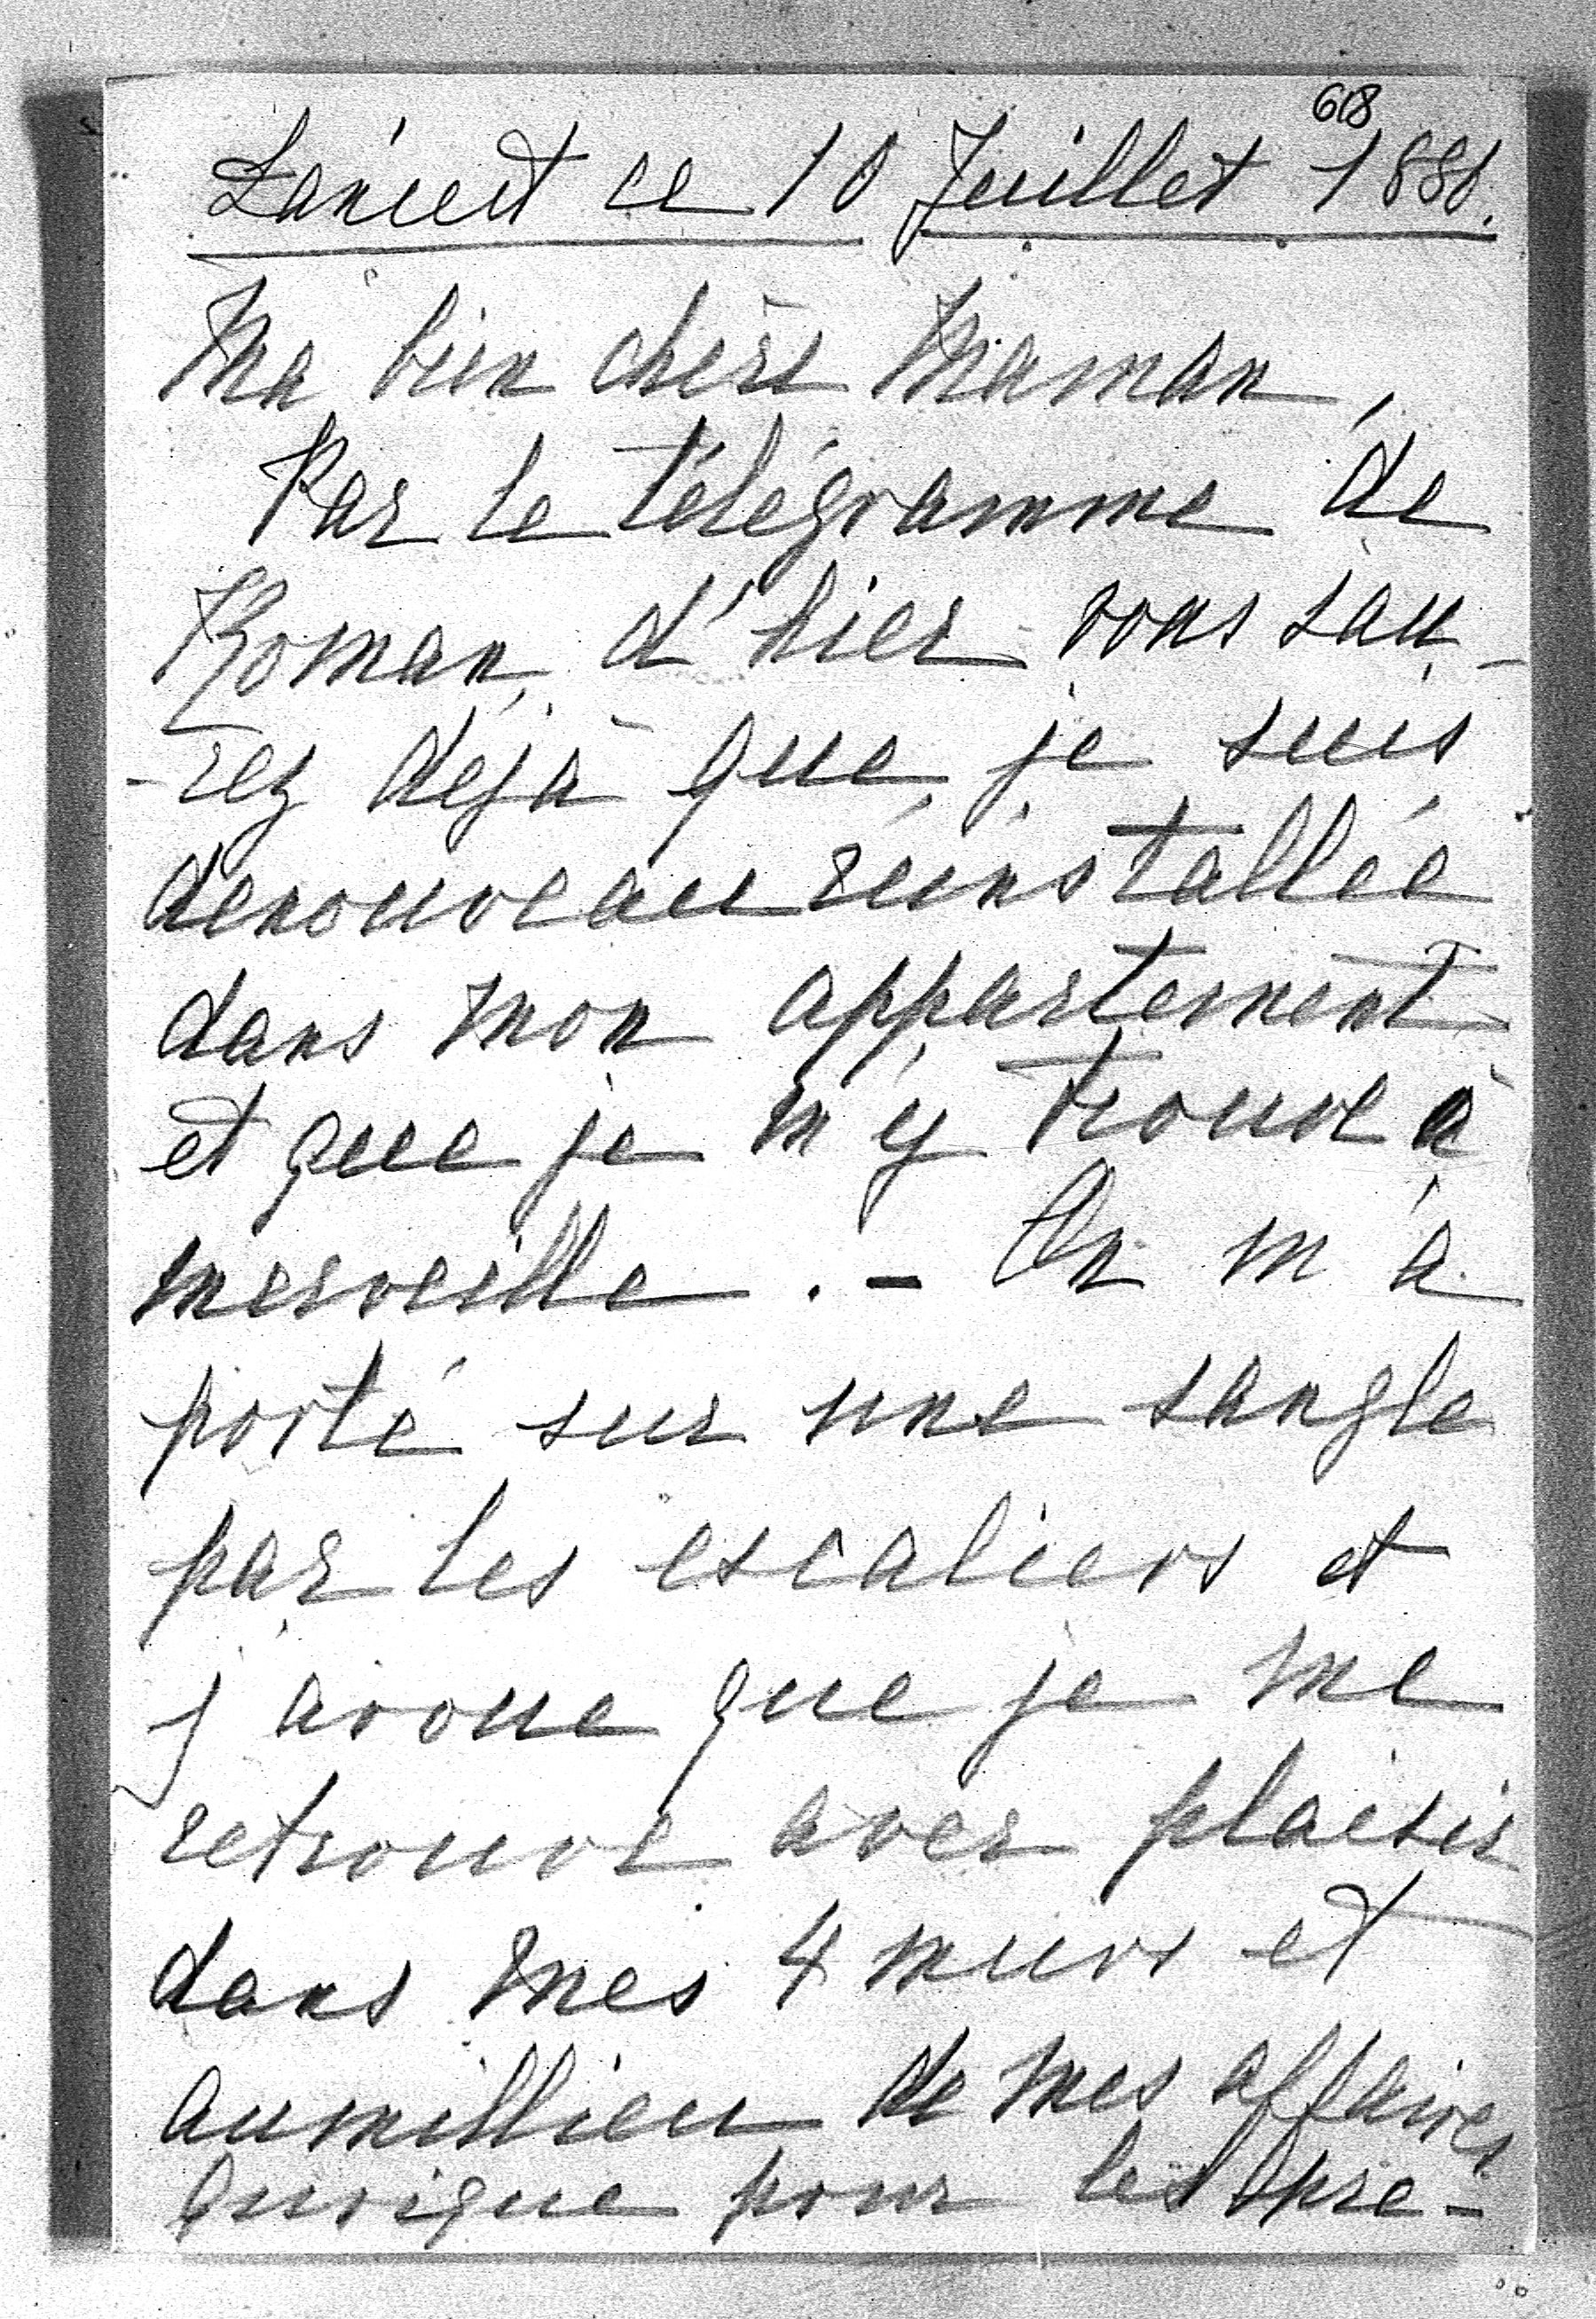 618
Lancut ce 10 Juillet 1881.
Ma bien chère Maman,
Par le télégramme de
Roman d'hier vous sau-
-rez déjà que je suis
denouveau réinstallée
dans mon appartement
et que je m'y trouve à
merveille. - On m'a
porté sur une sangle
par les escaliers et
j'avoue que je me
retrouve avec plaisir
dans mes 4 murs et
aumillieu de mes affaires
quoique pour les